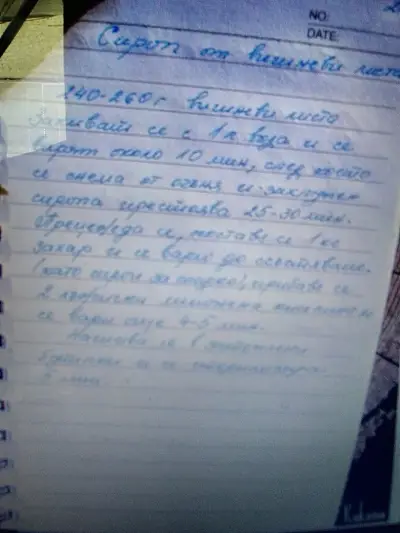 NO:
DATE:
Сироп от вишневи листа
240-260 г вишневи листа
Заливат се с 1 л вода и се
варят около 10 мин, след което
се снема от огъня и захлупен
сиропа престоява 25-30 мин.
Прецежда се, поставя се 1 кг
захар и се вари до сгъстяване.
(като сироп за сладко), прибавя се
2 лимонена киселина и
се вари още 4-5 мин.
Налива се в
бутилки и се стерилизира
5 мин.